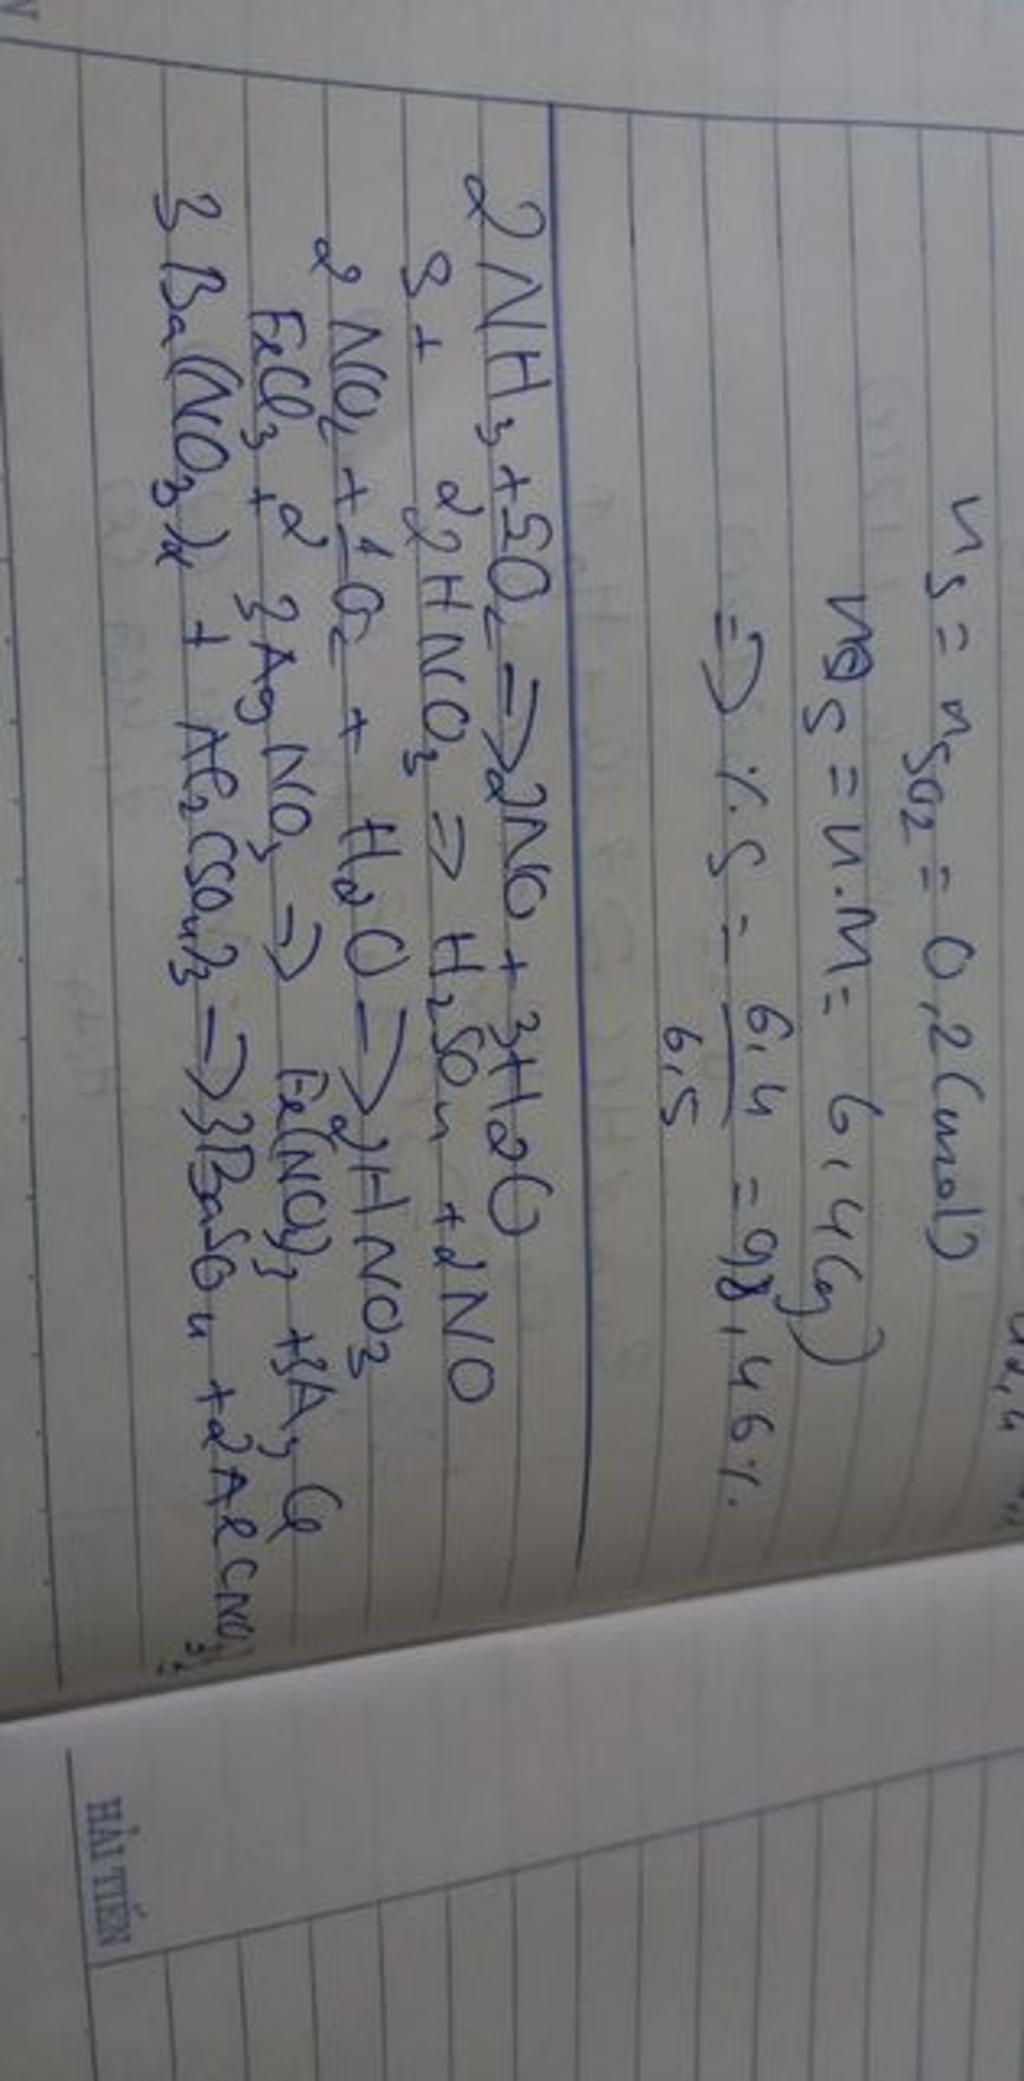 n_S = n_SO2 = 0,2 (mol)
m_S = n.M = 6,4 (g)
=> % S = 6,4 / 6,5 = 98,46 %
2NH3 + 5O2 => 2NO + 3H2O
S + 2HNO3 => H2SO4 + 2NO
2NO2 + 1/2 O2 + H2O => 2HNO3
FeCl3 + 3AgNO3 => Fe(NO3)3 + 3AgCl
3Ba(NO3)2 + Al2(SO4)3 => 3BaSO4 + 2Al(NO3)3
HẢI TIẾN